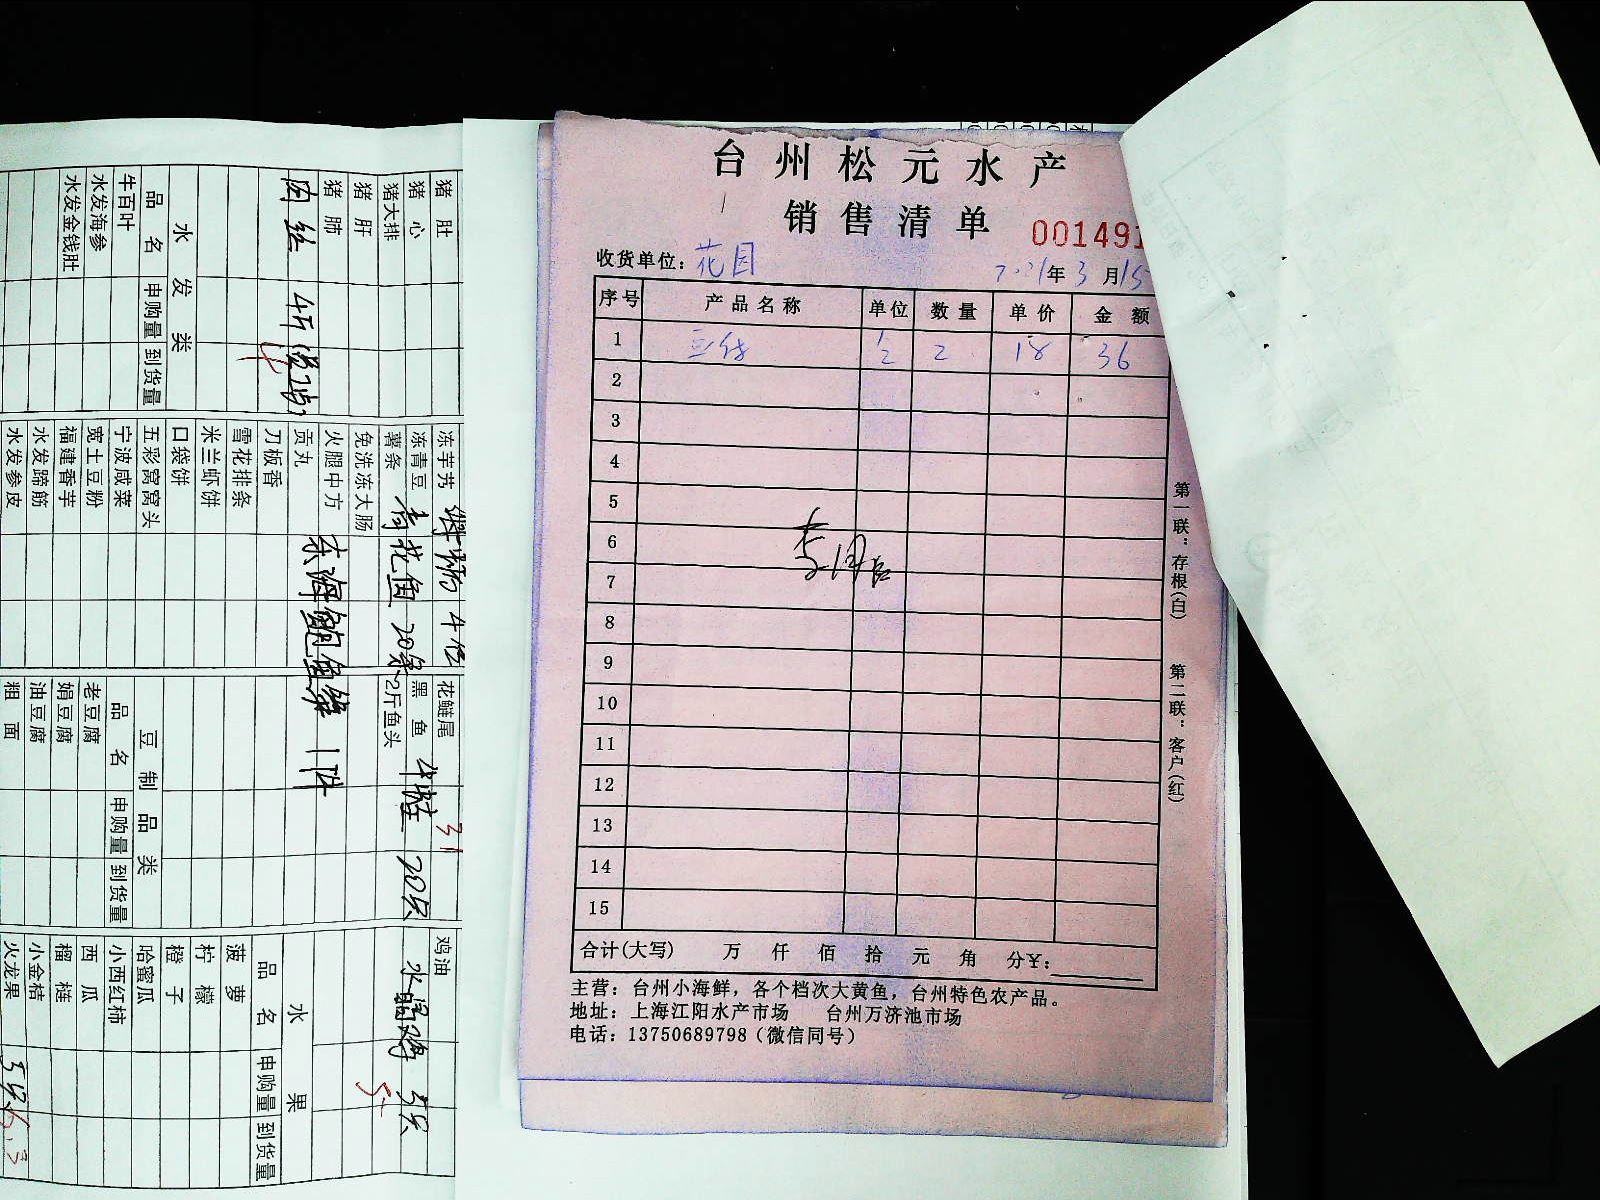 台州松元水产
销售清单
001491
收货单位：花园
2021年3月15
序号 产品名称 单位 数量 单价 金额
1 2 18 36
2
3
4
5
6
7
8
9
10
11
12
13
14
15
合计(大写) 万 仟 佰 拾 元 角 分¥：
主营：台州小海鲜，各个档次大黄鱼，台州特色农产品。
地址：上海江阳水产市场 台州万济池市场
电话：13750689798（微信同号）
第一联：存根(白) 第二联：客户(红)
猪肚
猪心
猪大排
猪肝
猪肺
肉丝 4斤
水发类
品名 申购量 到货量
牛百叶
水发海参
水发金钱肚
冻芋艿
冻青豆
薯条 青花鱼 20条
免洗冻大肠
火腿中方
贡丸 东海鲍鱼 1件
刀板香
雪花排条
米兰虾饼
口袋饼
五彩窝窝头
宁波咸菜
宽土豆粉
福建香芋
水发蹄筋
水发参皮
花鲢尾 31
黑鱼 牛蛙 20只
2斤鱼头
豆制品类
品名 申购量 到货量
老豆腐
娟豆腐
油豆腐
粗面
鸡油
水晶鸡 5只
5
水果
品名 申购量 到货量
菠萝
柠檬
橙子
哈蜜瓜
小西红柿
西瓜
榴梿
小金桔
火龙果 6.3